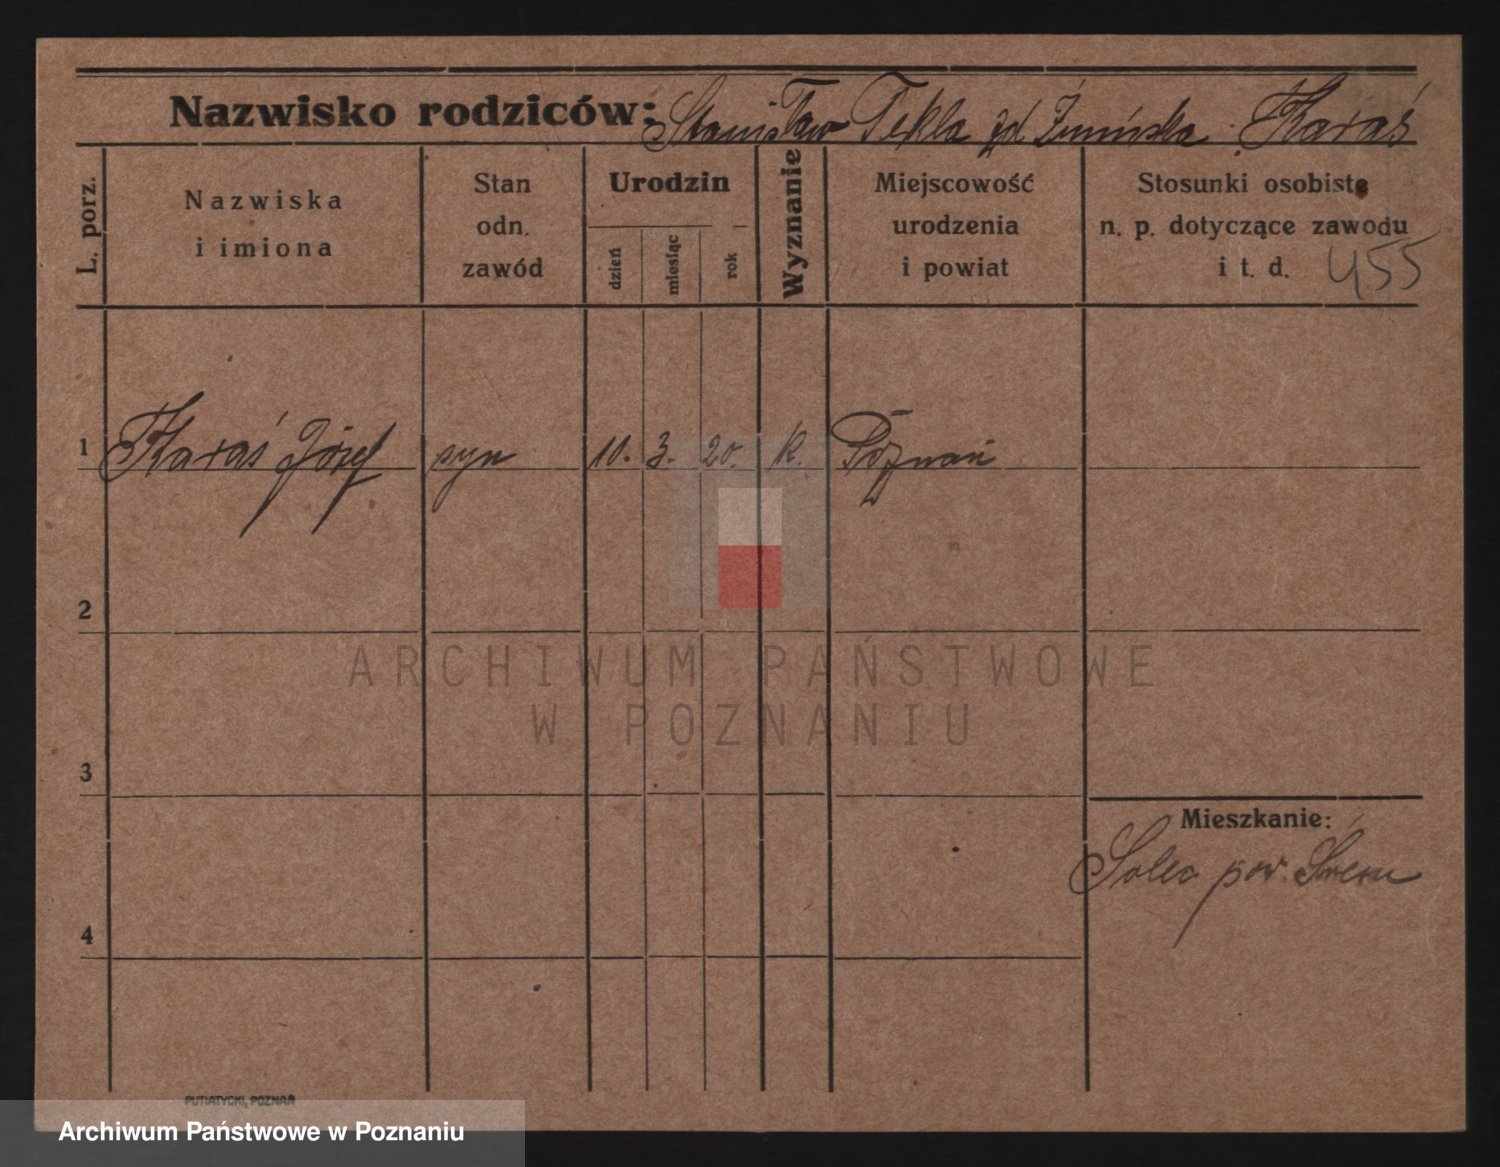 Nazwisko rodziców: Stanisław Tekla zd Żumińska Karaś
L. porz.
Nazwiska
i imiona
Stan
odn.
zawód
Urodzin
dzień
miesiąc
rok
Wyznanie
Miejscowość
urodzenia
i powiat
Stosunki osobiste
n. p. dotyczące zawodu
i t. d.
455
1 Karaś Józef syn 10. 3. 20. k. Poznań
2
ARCHIWUM PAŃSTWOWE
W POZNANIU
3
Mieszkanie:
Solec pow. Śrem
4
PUTIATYCKI, POZNAŃ
Archiwum Państwowe w Poznaniu